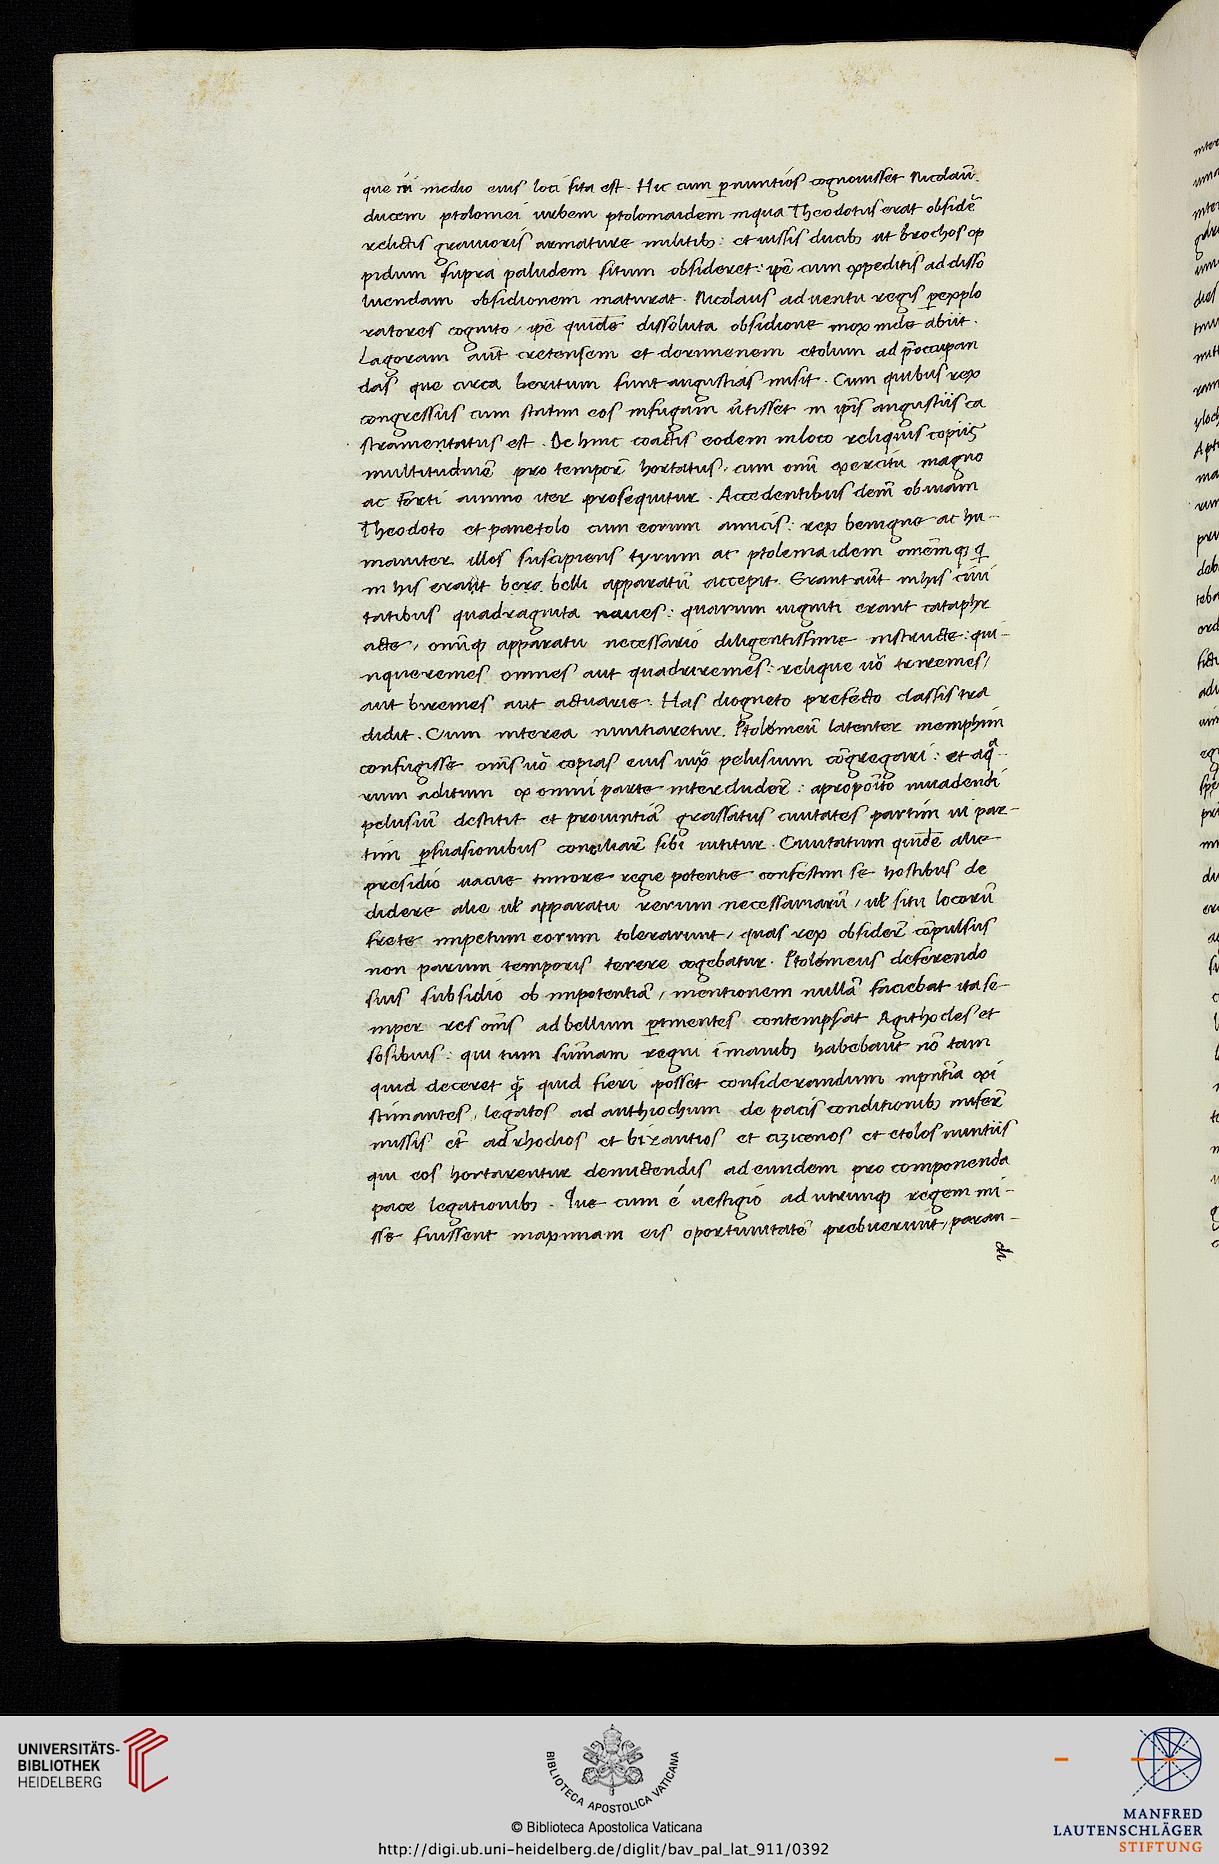 que in medio eius loci sita est. Hic cum p̲ nuntios cognouisset Nicolaū
ducem ptolomei urbem ptolomaidem inqua Theodotus erat obsidē
relictis grauioris armature militib; : et iussis ducib; ut brochos op
pidum supra paludem situm obsideret : ip̄e cum expeditis ad disso
luendam obsidionem maturat. Nicolaus aduentu regis p̲ explo
ratores cognito, ip̄e quidē dissoluta obsidione mox inde abiit.
Lagoram aūt cretensem et dorimenem etolum ad p̄occupan
das que circa beritum sunt angustias misit. Cum quibus rex
congressus cum statim eos infugam ūtisset in ip̄is angustiis ca
strametatus est. De hinc coactis eodem inloco reliquis copiis
multitudinē pro temporē hortatus, cum omī exercitu magno
ac forti animo iter prosequitur. Accedentibus deīn obuiam
Theodoto et panetolo cum eorum amicis : rex benigne ac hu-
maniter illos suscipiens tyrum ac ptolemaidem omēmq; q̄
in his erant belli apparatū accepit. Erant aūt inhis ciui
tatibus quadraginta naues : quarum uiginti erant cataphr
acte, omīq; apparatu necessario diligentissime instructe : qui-
nqueremes omnes aut quadriremes : relique uō triremes,
aut biremes aut actuarie. Has diogneto prefecto classis tra
didit. Cum interea nuntiaretur. Ptolomeū latenter memphim
confugisse om̄s uō copias eius iuxᵃ pelusium cōgregari : et aqᵃ-
rum aditum ex omni parte intercluderē : aproposito inuadendi
pelusiū destitit et prouintiā grassatus ciuitates partim ui par-
tim p̲suasionibus conciliarē sibi nititur. Ciuitatum quidē alie
presidio uacue timore regie potentie confestim se hostibus de
didere alie uł apparatu rerum necessariarū, uł situ locorū
frete impetum eorum tolerarunt, quas rex obsiderē cōpulsus
non parum temporis terere cogebatur. Ptolomeus deferendo
suis subsidio ob impotentiā, mentionem nullā faciebat ita se-
mper res om̄s ad bellum p̲tinentes contempsat Agithocles et
sosibius : qui tum sūmam regni ī manib; habebant nō tam
quid deceret q̄ quid fieri posset considerandum inpn̄tia exi
stimantes, legatos ad anthiochum de pacis conditionib; miserē
missis et̄ ad rhodios et bizantios et cizicenos et etolos nuntiis
qui eos hortarentur demittendis ad eundem pro componenda
pace legationib;. Que cum é uestigio ad utrunq; regem mi-
sse fuissent maximam eis oportunitatē prebuerunt, paran-
di
UNIVERSITÄTS-
BIBLIOTHEK
HEIDELBERG
BIBLIOTECA APOSTOLICA VATICANA
© Biblioteca Apostolica Vaticana
http://digi.ub.uni-heidelberg.de/diglit/bav_pal_lat_911/0392
MANFRED
LAUTENSCHLÄGER
STIFTUNG